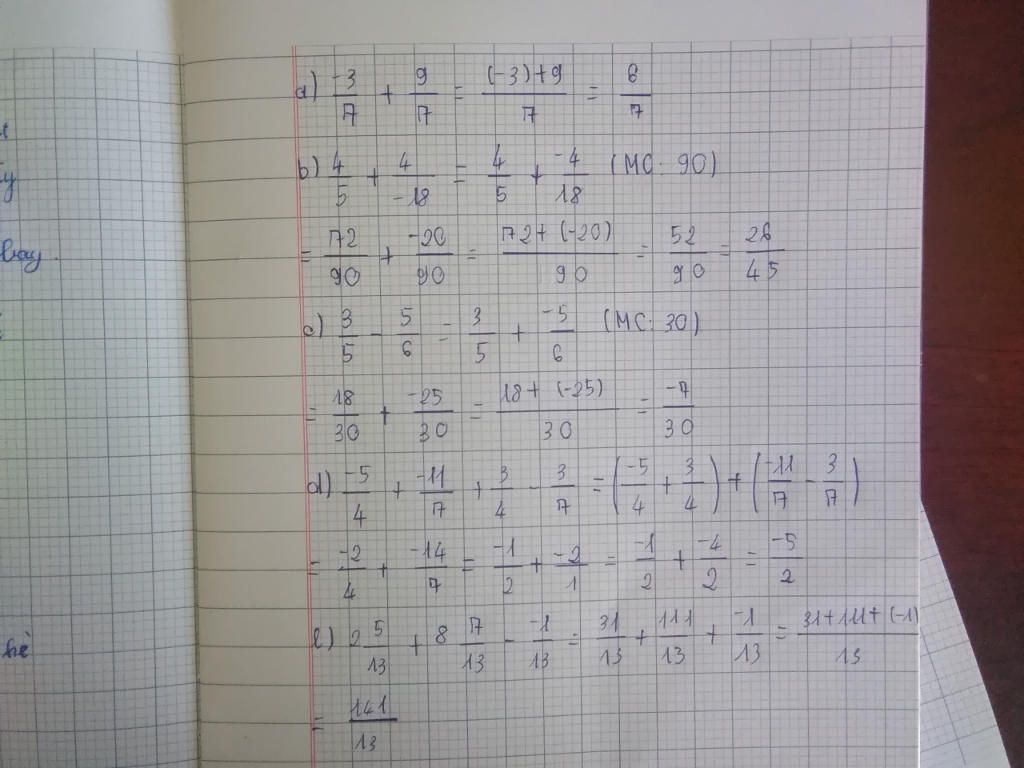 a) -3/7 + 9/7 = (-3)+9/7 = 6/7
b) 4/5 + 4/-18 = 4/5 + -4/18 (MC: 90)
= 72/90 + -20/90 = 72+(-20)/90 = 52/90 = 26/45
c) 3/5 - 5/6 = 3/5 + -5/6 (MC: 30)
= 18/30 + -25/30 = 18+(-25)/30 = -7/30
d) -5/4 + -11/7 + 3/4 - 3/7 = (-5/4 + 3/4) + (-11/7 - 3/7)
= -2/4 + -14/7 = -1/2 + -2/1 = -1/2 + -4/2 = -5/2
e) 2 5/13 + 8 7/13 - -1/13 = 31/13 + 111/13 + -1/13 = 31+111+(-1)/13
= 141/13
bè